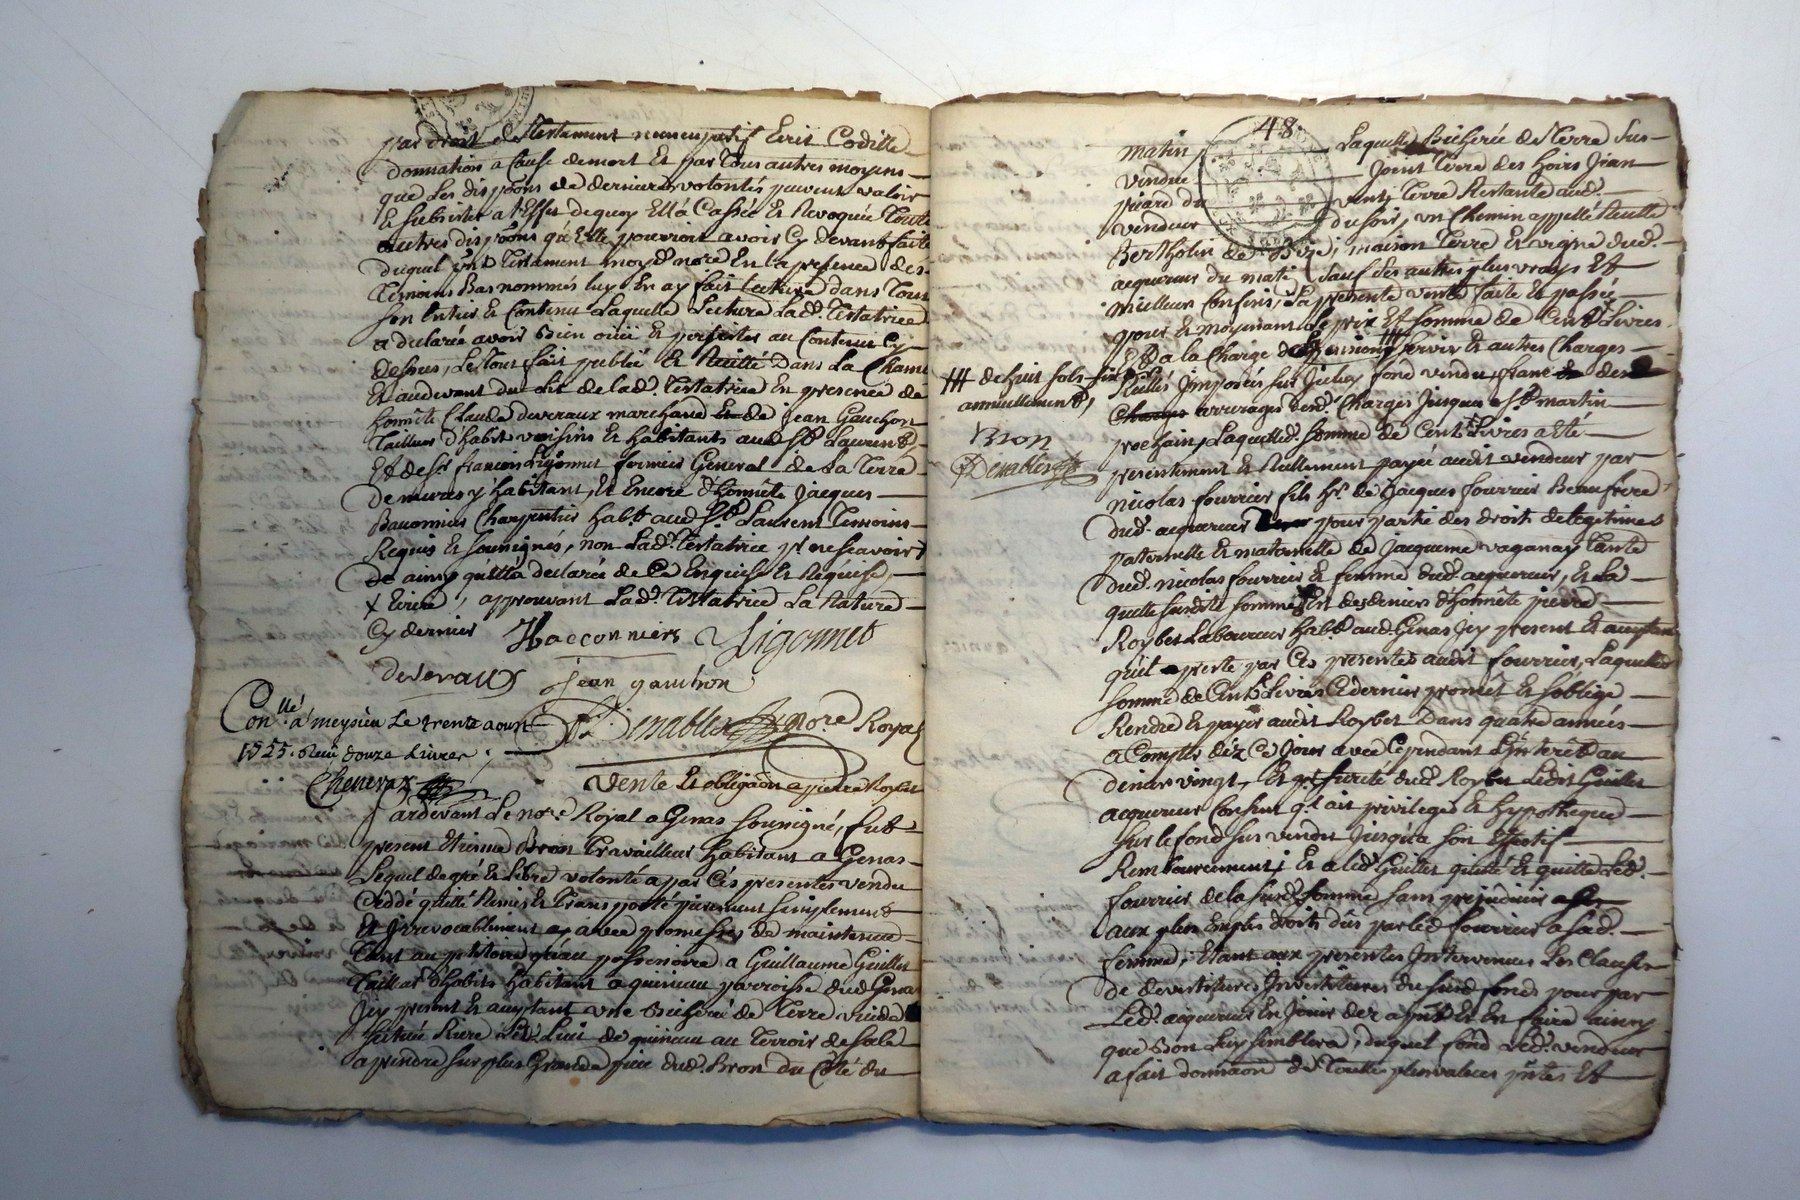 par droit de Testament nuncupatif Ecrit Codille
donnation a Cause demort Et par Tous autres moyens
que Les dispõons de dernieres volontés puevent valoir
Et subsister a l'Effet dequoy Ell'a Cassée Et Revoquée Toutte
autres dispõons qu'Elle pourroit avoir Cy devant faite
duquel Testament moyd. nore En la presence des
Temoins Bas nommés luy En ay fait Lecture dans Tout
son Entier Et Contenu Laquelle Lecture Lad. Testatrice
a declarée avoir Bien ouïe Et persister au Contenu Cy
dessus, Le Tout fait publié Et Recitté Dans La Chambre
Et audevant du lit de Lad. Testatrice En presence de
honnête Claude deveraux marchand Et de jean Gauchon
Tailleur d'habits voisins Et habitants aud. St. Laurent,
Et de Sr. françois Ligonnet fermier General de La Terre
de mures y habitant, Et Encore d'honnête jacques
Baconnier Charpentier habt. aud. St. Laurent Temoins
Requis Et soussignés, non Lad. Testatrice pr. ne scavoir +
de ainsy qu'Ell'a declarée de Ce Enquise Et Requise,
+ Ecrire, approuvant Lad. Testatrice La Rature
Cy dernier Hacconniers Ligonnet
deveraux jean gauchon
Conllé. a meysieu Le trente aoust Demables nore Royal
1755. Reçu douze Livres
Chenevaz
Vente Et obligãon a pierre Roybet
Pardevant Le nore Royal a Genas soussigné, fut
present Etienne Bron Travailleur habitant a Genas
Lequel de gré Et Libre volonté a par Ces presentes vendu
Ceddé quitté Remis Et Transporté purement simplement
Et Irrevocablement avec promesses de maintenue
Tant au petitoire qu'au possessoire a Guillaume Guillet
Tailleur d'habits habitant a quincieu parroisse dud. Genas
Icy present Et acceptant une Bicherée de Terre
située Riere Led. Lieu de quincieu au Terroir de sale
a prendre sur plus Grande piece dud. Bron du Côté du
48
matin Laquelle Bicherée de Terre sus
vendue Joint Terre des hoirs jean
vent, Terre Restante aud.
vendeur du soir, un Chemin appellé Ruelle
Bertholin de Bize, maison Terre Et vigne dud.
acquereur du matin sauf des autres plus vrays Et
meilleur Confins, La presente vente faite Et passée
pour Et moyenant Le prix Et somme de Cent Livres
Et a la Charge de pension # servir Et autres Charges
# de huit sols
annuellement,
Bron
Demables
Reelles Imposées sur Iceluy fond vendu, franc de
arrerages desd. Charges jusques a St. martin
prochain, Laquelle d. somme de Cent Livres a Eté
presentement Et Reellement payée audit vendeur par
nicolas fourrier fils hr. de jacques fourrier Beaufrere
dud. acquereur pour partie des droits de Legitime
paternelle Et maternelle de jacqueme vaganay Tante
dud. nicolas fourrier Et femme dud. acquereur, Et La
quelle susditte somme Est des deniers d'honnête pierre
Roybet Laboureur habt. aud. Genas Icy present Et acceptant
qu'il a preste par Ces presentes audit fourrier, Laquelle
somme de Cent Livres Ce dernier promet Et s'oblige
Rendre Et payer audit Roybet Dans quatre années
a Compter déz Ce jour avec Cependant L'Interêt au
denier vingt, Et pr. sureté dud. Roybet Ledit Guillet
acquereur Consent qu'il ait privilege Et hypotheque
sur Le fond sus vendu jusqu'a son Effectif
Remboursement, Et a Led. Guillet quitté Et quitte Led.
fourrier de La susd. somme sans prejudicier
aux plus Emples droits dûs par Led. fourrier a sad.
femme, Etant aux presentes Intervenues Les Clauses
de devestitures Investitures du susd. fonds pour par
Led. acquereur En Jouir dez a pnt. Et En faire ainsy
que Bon Luy semblera, duquel fond Led. vendeur
a fait donnãon de Toutte plusvaleur pntes Et